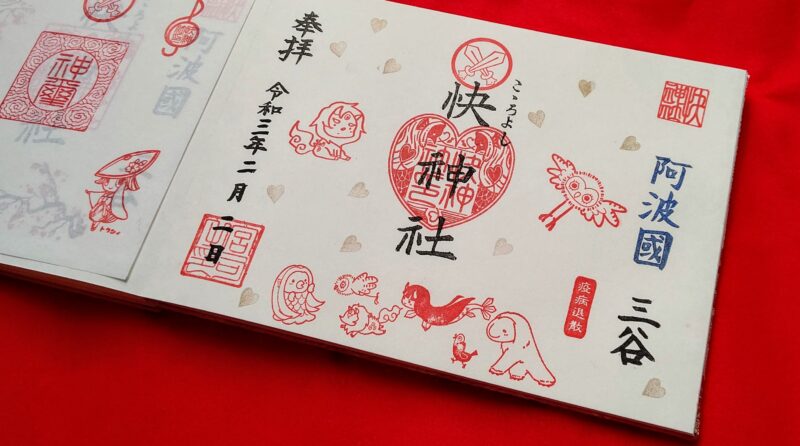 阿波國
三谷
疫病退散
こゝろよし
快神社
奉拝
令和三年二月二日
阿波國
神璽
社